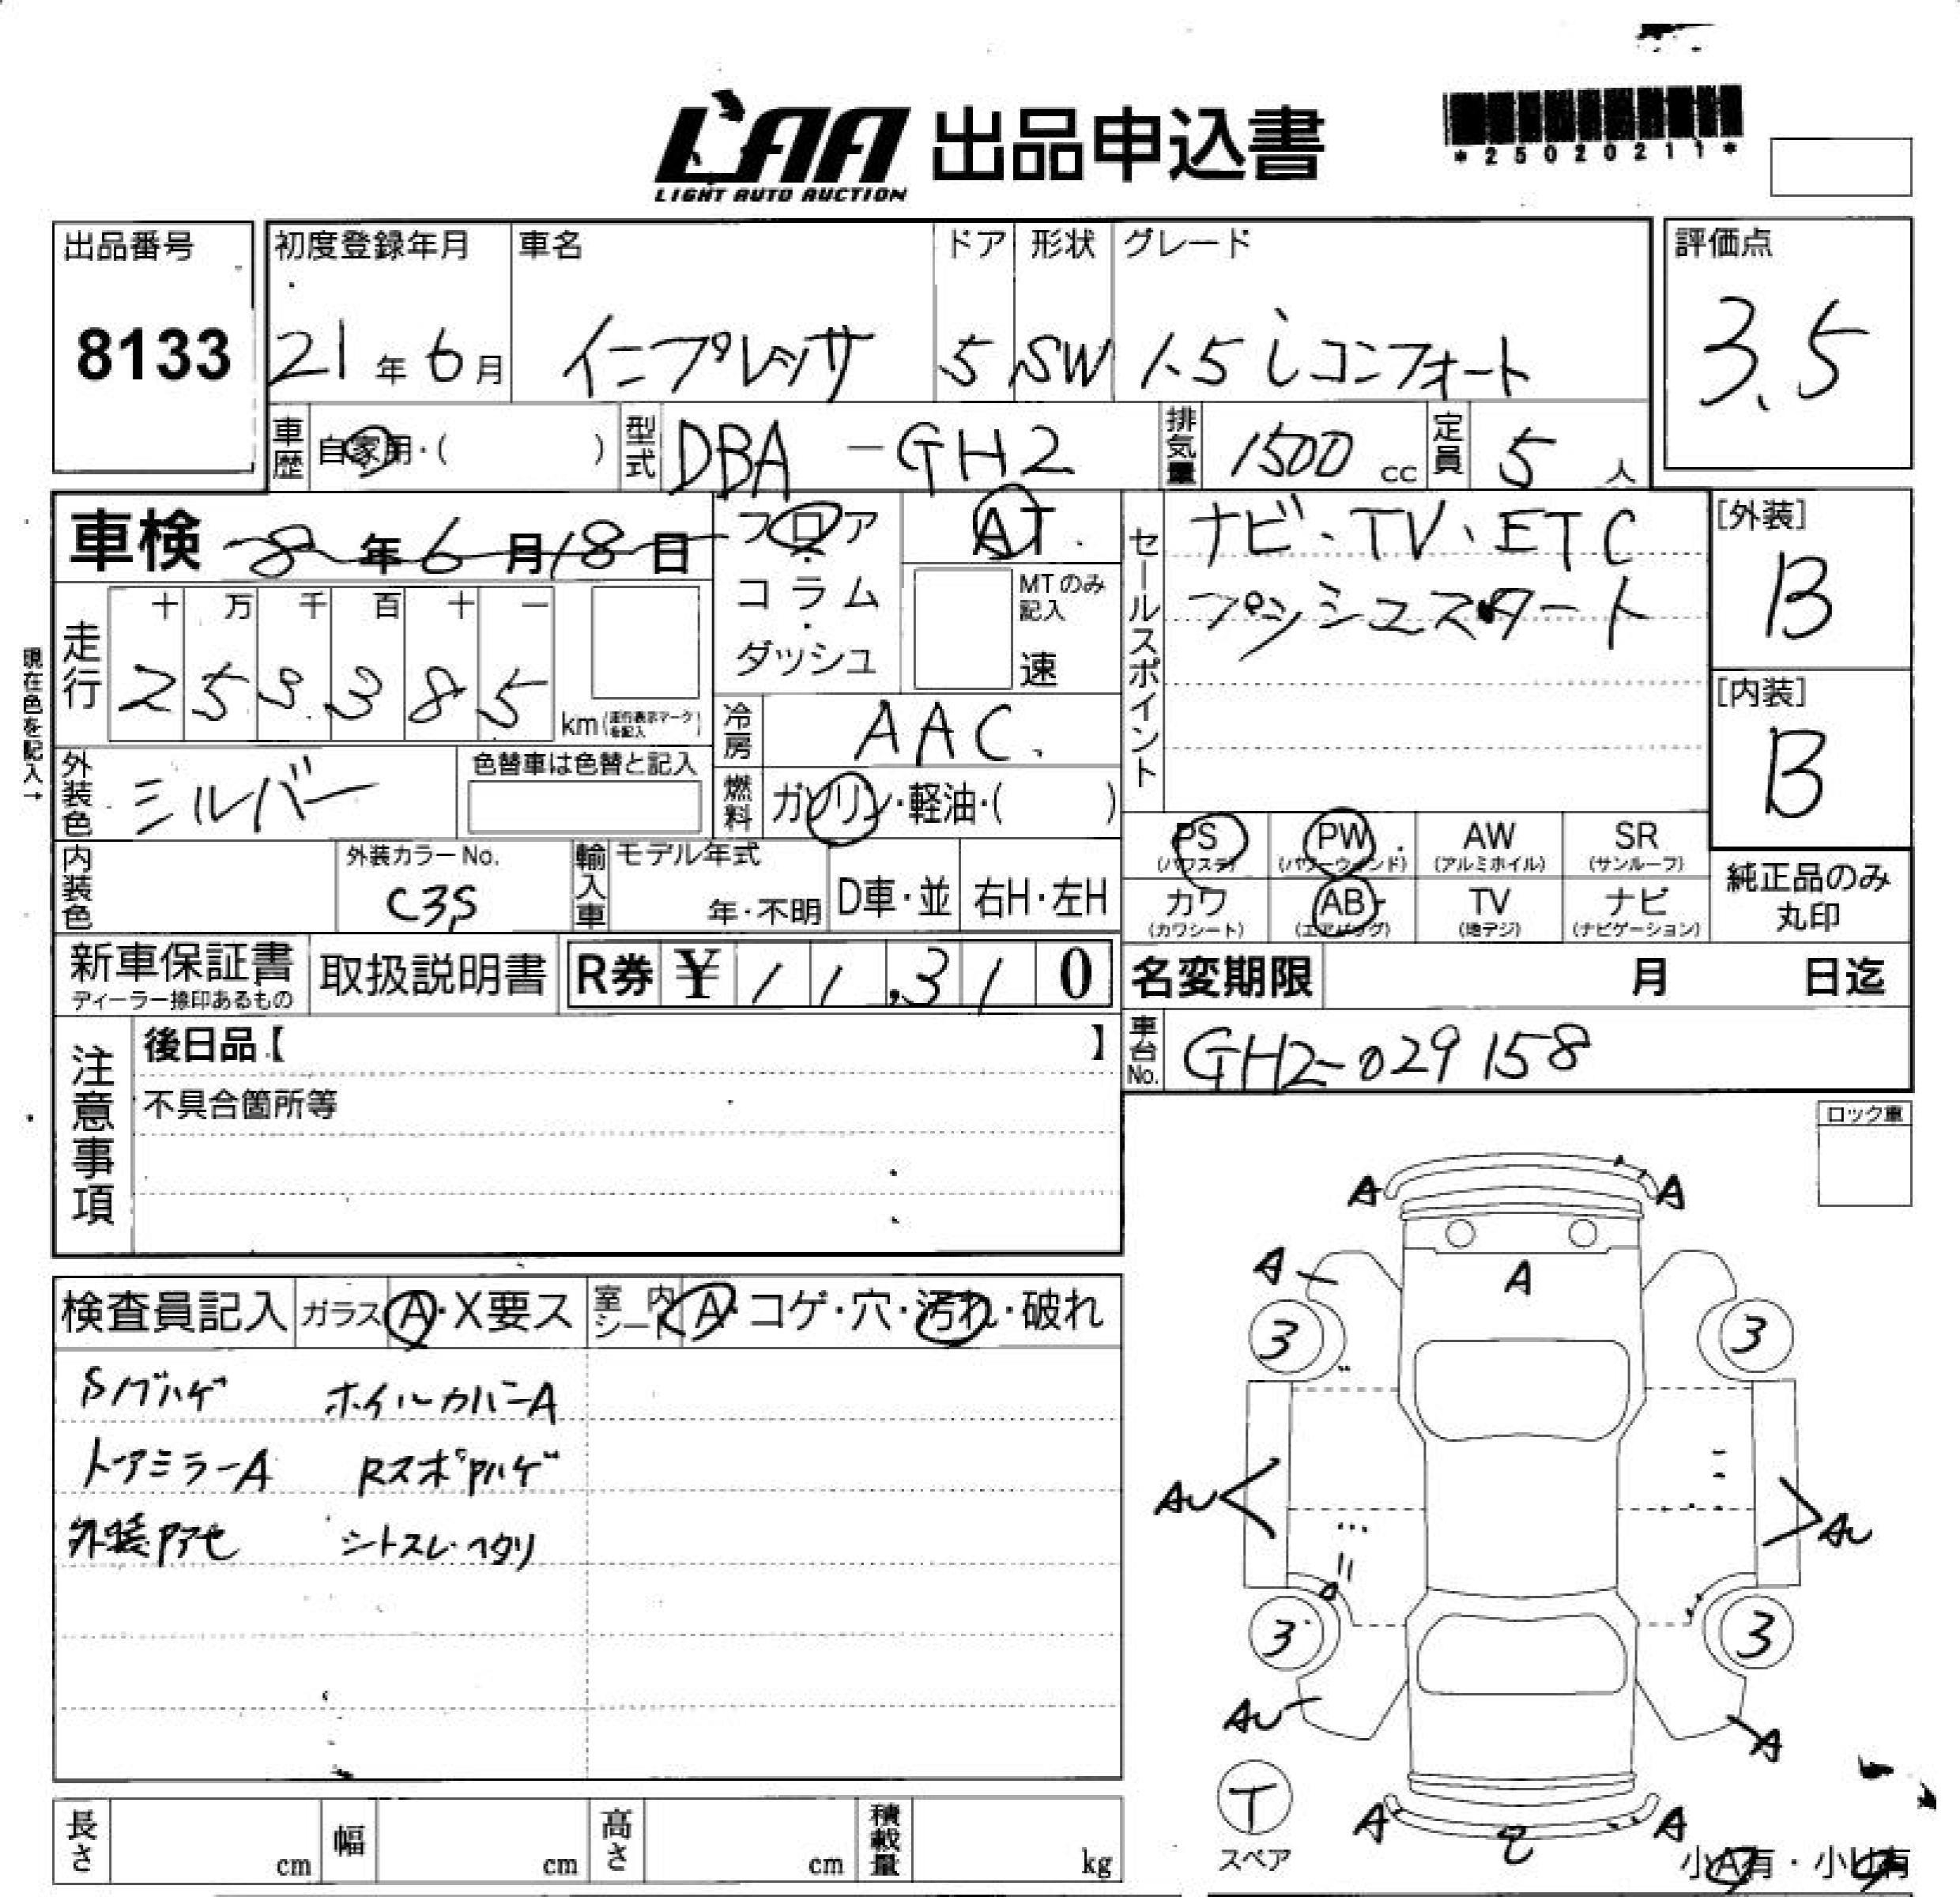 LAA 出品申込書
LIGHT AUTO AUCTION
*25020211*
出品番号
8133
初度登録年月 車名 ドア 形状 グレード
21年6月 インプレッサ 5 SW 1.5i コンフォート
評価点
3.5
車歴 自家用・( ) 型式 DBA-GH2 排気量 1500cc 定員 5人
車検 8年6月18日
フロア・コラム・ダッシュ
AT.
MTのみ記入
速
セールスポイント
ナビ・TV・ETC
プッシュスタート
[外装]
B
[内装]
B
現在色を記入→
走行 十 万 千 百 十 一
255385 km (走行表示マークを記入)
冷房 AAC.
外装色 シルバー 色替車は色替と記入
燃料 ガソリン・軽油・( )
内装色 外装カラーNo. C3S
輸入車 モデル年式 年・不明 D車・並 右H・左H
PS (パワステ) PW (パワーウィンド) AW (アルミホイル) SR (サンルーフ)
カワ (カワシート) AB (エアバッグ) TV (地デジ) ナビ (ナビゲーション)
純正品のみ
丸印
新車保証書 ディーラー捺印あるもの 取扱説明書 R券 ¥11,310
名変期限 月 日迄
車台No. GH2-029158
注意事項
後日品【 】
不具合箇所等
ロック車
検査員記入 ガラス A・X要ス 室内シート A・コゲ・穴・汚れ・破れ
Sノブハゲ ホイルカバーA
ドアミラーA RスポPハゲ
外装Pアセ シートスレ・ヘタリ
A A
A A
3 3
AU AU
3 3
AU A
T
スペア
A A
小A有・小U有
長さ cm 幅 cm 高さ cm 積載量 kg